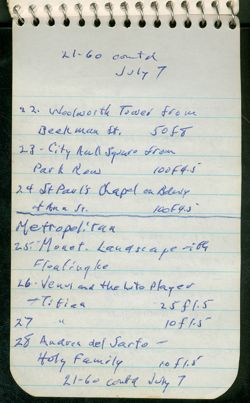 21-60 contd
July 7
22. Woolworth Tower from
Beekman St. 50 f 8
23 - City Hall Square from
Park Row 100 f 4.5
24 St Paul's Chapel on Bdwy
+ Ann St. 100 f 4.5
Metropolitan
25 - Monet. Landscape with
26 - Venus and the Lute Player
- Titian 25 f 1.5
27 " 10 f 1.5
28 Andrea del Sarto -
Holy Family 10 f 1.5
21-60 contd July 7